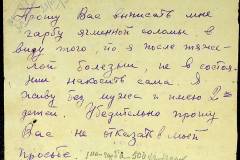 Прошу Вас выписать мне
гарбу ячменной соломы, в
виду того, по я после тяже-
лой болезни, не в состоя-
нии накосить сама. Я
живу без мужа и имею 2=
детей. Убедительно прошу
Вас не отказать в моей
просьбе.